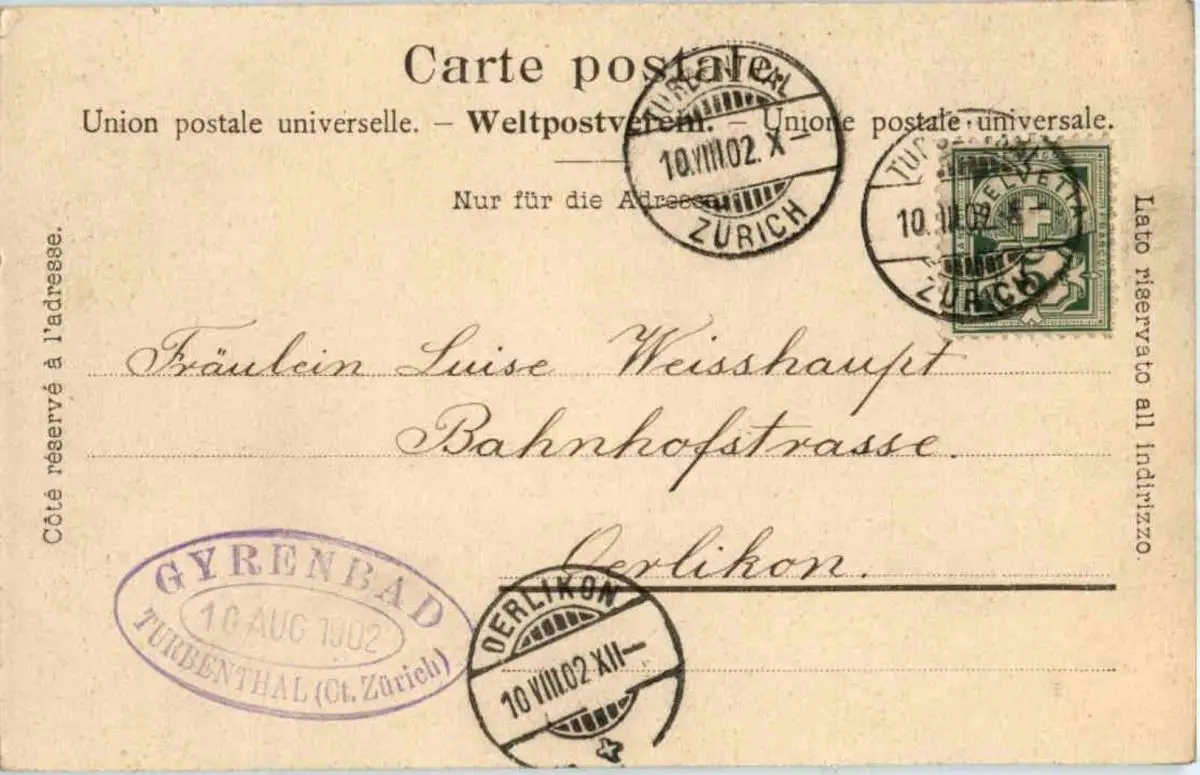 Carte postale.
Union postale universelle. – Weltpostverein. – Unione postale universale.
Nur für die Adresse.
TURBENTHAL
10.VIII.02. X–
ZÜRICH
TURBENTHAL
10.VIII.02. X–
ZÜRICH
HELVETIA
5
Côté réservé à l'adresse.
Lato riservato all indirizzo.
Fräulein Luise Weisshaupt
Bahnhofstrasse.
Oerlikon.
GYRENBAD
10 AUG 1902
TURBENTHAL (Ct. Zürich)
OERLIKON
10 VIII.02 XII–